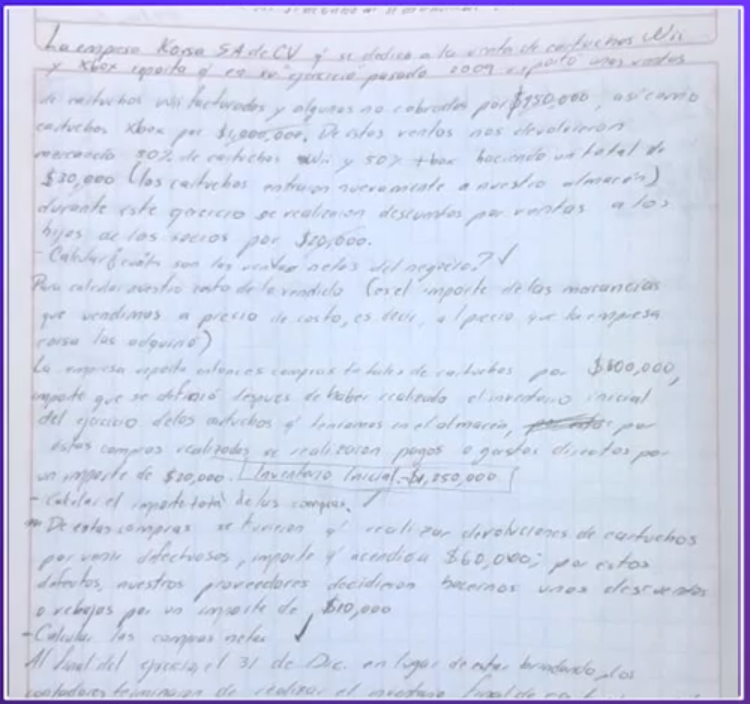 La empresa Korsa SA de CV q' se dedica a la venta de cartuchos Wii
y Xbox reporta q' en su "ejercicio" pasado 2009 reportó unas ventas
de cartuchos wii facturados y algunos no cobrados por $950,000, así como
cartuchos Xbox por $1,000,000. De estas ventas nos devolvieron
mercancía 50% de cartuchos Wii y 50% xbox haciendo un total de
$30,000 (los cartuchos entraron nuevamente a nuestro almacén)
durante este ejercicio se realizaron descuentos por ventas a los
hijos de los socios por $20,000.
- Calcular ¿cuáles son las ventas netas del negocio? ✓
Para calcular nuestro costo de lo vendido (es el importe de las mercancías
que vendimos a precio de costo, es decir, al precio que la empresa
corsa las adquirió)
La empresa reporta entonces compras totales de cartuchos por $800,000,
importe que se definió después de haber realizado el inventario inicial
del ejercicio de los cartuchos q' teníamos en el almacén, por
éstas compras realizadas se realizaron pagos o gastos directos por
un importe de $20,000. Inventario Inicial.-$1,250,000
- Calcular el importe total de las compras. ✓
De estas compras se tuvieron q' realizar devoluciones de cartuchos
por venir defectuosos, importe q' ascendió a $60,000; por estos
defectos, nuestros proveedores decidieron hacernos unos descuentos
o rebajas por un importe de $10,000
- Calcular las compras netas ✓
Al final del ejercicio, el 31 de Dic. en lugar de estar brindando, los
contadores terminaron de realizar el inventario final de